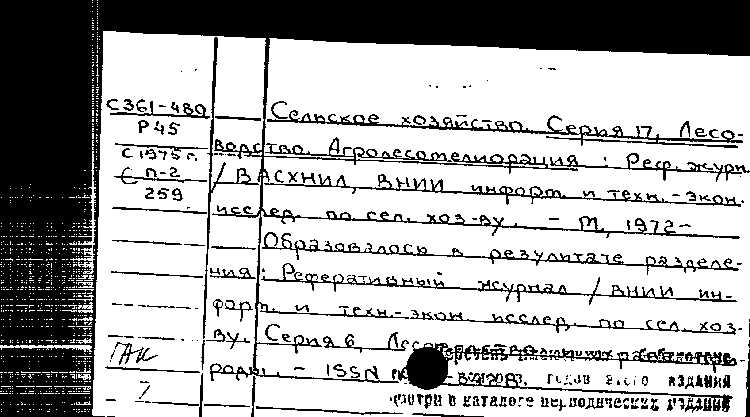 С361-480
Р45
С 1975 г.
П-2
259
Сельское хозяйство. Серия 17, Лесо-
водство. Агролесомелиорация : Реф. журн.
/ ВАСХНИЛ, ВНИИ информ. и техн.-экон.
исслед. по сел. хоз-ву. - М., 1972-
Образовалось в результате разделе-
ния: Реферативный журнал / ВНИИ ин-
форм. и техн.-экон. исслед. по сел. хоз-
ву. Серия 6,
роды. - ISSN
издания
смотри в каталоге периодических изданий